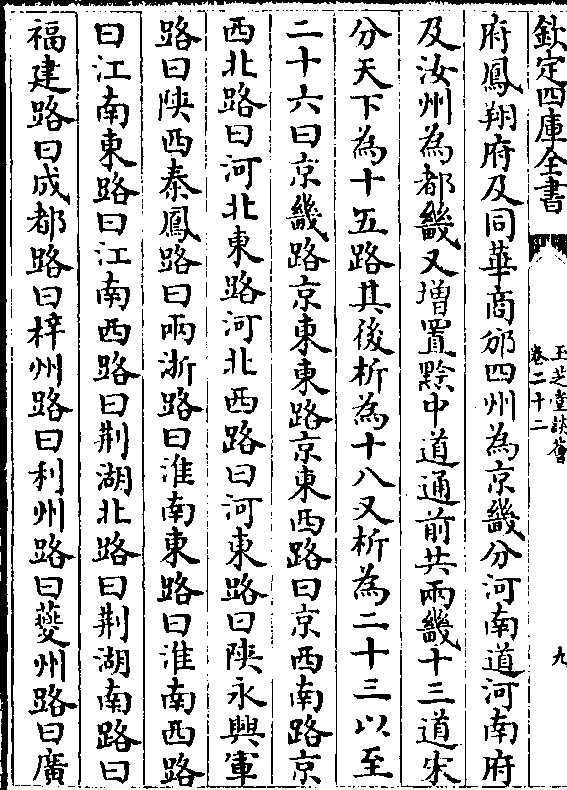 欽定四庫全書
玉芝堂談薈
卷二十二
九
府鳳翔府及同華商邠四州為京畿分河南道河南府
及汝州為都畿又增置黔中道通前共兩畿十三道宋
分天下為十五路其後析為十八又析為二十三以至
二十六曰京畿路京東東路京東西路曰京西南路京
西北路曰河北東路河北西路曰河東路曰陜永興軍
路曰陜西秦鳳路曰兩浙路曰淮南東路曰淮南西路
曰江南東路曰江南西路曰荆湖北路曰荆湖南路曰
福建路曰成都路曰梓州路曰利州路曰夔州路曰廣